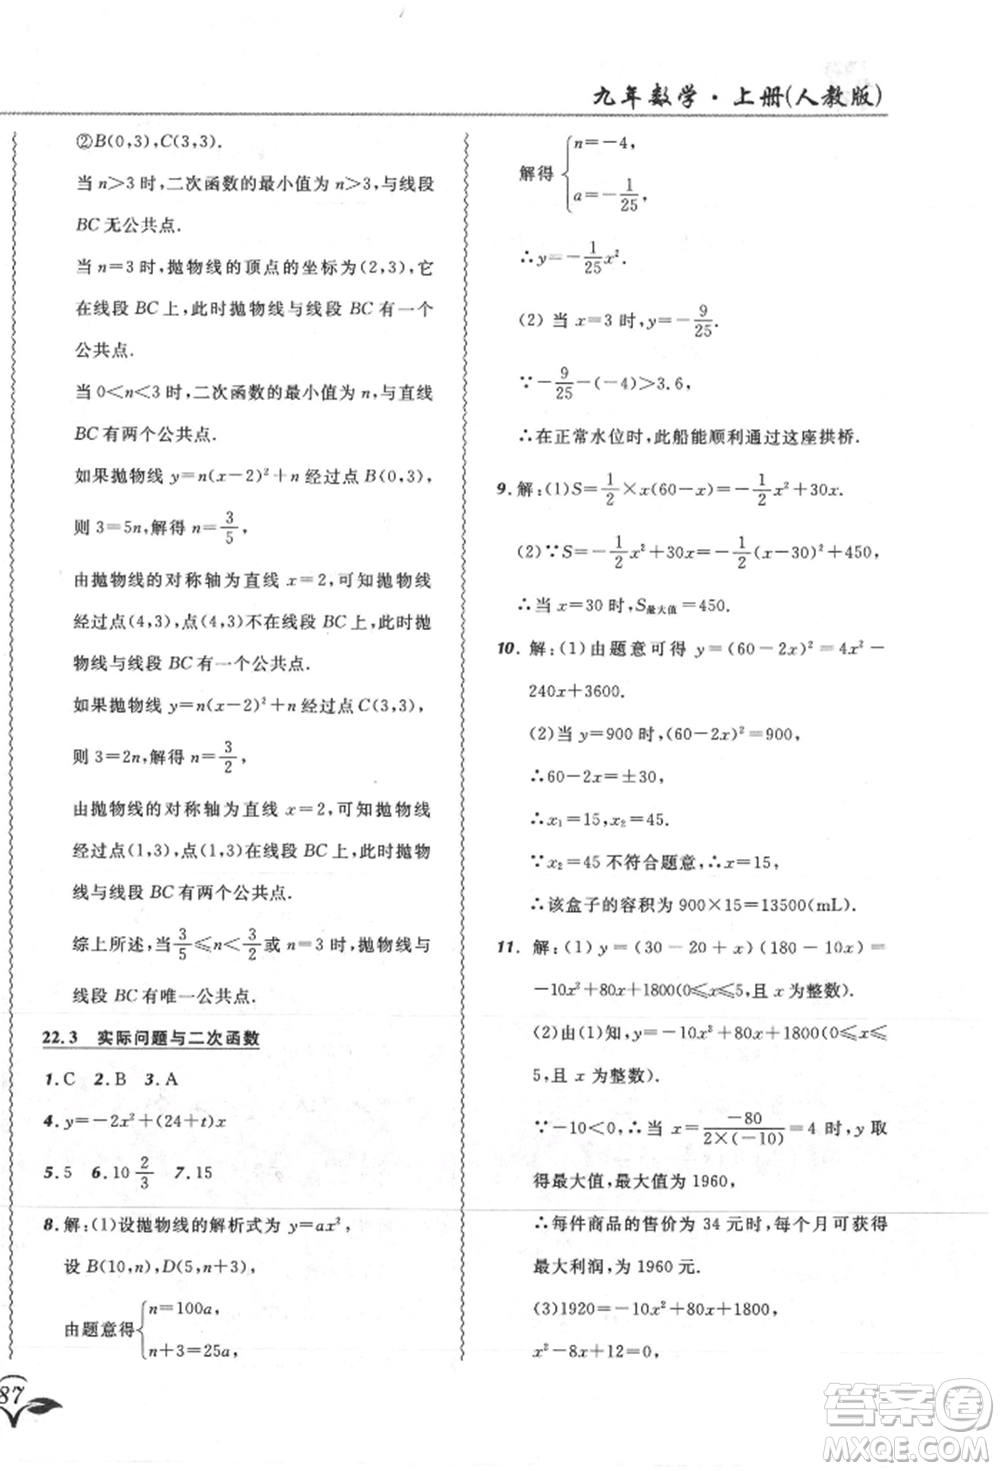 九年数学·上册(人教版)
②B(0,3),C(3,3).
当 n>3 时,二次函数的最小值为 n>3,与线段
BC 无公共点.
当 n=3 时,抛物线的顶点的坐标为(2,3),它
在线段 BC 上,此时抛物线与线段 BC 有一个
公共点.
当 0<n<3 时,二次函数的最小值为 n,与直线
BC 有两个公共点.
如果抛物线 y=n(x-2)²+n 经过点 B(0,3),
则 3=5n,解得 n=3/5,
由抛物线的对称轴为直线 x=2,可知抛物线
经过点(4,3),点(4,3)不在线段 BC 上,此时抛
物线与线段 BC 有一个公共点.
如果抛物线 y=n(x-2)²+n 经过点 C(3,3),
则 3=2n,解得 n=3/2,
由抛物线的对称轴为直线 x=2,可知抛物线
经过点(1,3),点(1,3)在线段 BC 上,此时抛物
线与线段 BC 有两个公共点.
综上所述,当 3/5≤n<3/2或 n=3 时,抛物线与
线段 BC 有唯一公共点.
22.3 实际问题与二次函数
1.C 2.B 3.A
4.y=-2x²+(24+t)x
5.5 6.10 2/3 7.15
8.解:(1)设抛物线的解析式为 y=ax²,
设 B(10,n),D(5,n+3),
由题意得{n=100a,
n+3=25a,
87
解得{n=-4,
a=-1/25,
∴y=-1/25x².
(2) 当 x=3 时,y=-9/25.
∵-9/25-(-4)>3.6,
∴在正常水位时,此船能顺利通过这座拱桥.
9.解:(1)S=1/2×x(60-x)=-1/2x²+30x.
(2)∵S=-1/2x²+30x=-1/2(x-30)²+450,
∴当 x=30 时,S最大值=450.
10.解:(1)由题意可得 y=(60-2x)²=4x²-
240x+3600.
(2)当 y=900 时,(60-2x)²=900,
∴60-2x=±30,
∴x₁=15,x₂=45.
∵x₂=45 不符合题意,∴x=15,
∴该盒子的容积为 900×15=13500(mL).
11.解:(1) y=(30-20+x)(180-10x)=
-10x²+80x+1800(0≤x≤5,且 x 为整数).
(2)由(1)知,y=-10x²+80x+1800(0≤x≤
5,且 x 为整数).
∵-10<0,∴当 x=-80/2×(-10)=4 时,y 取
得最大值,最大值为 1960,
∴每件商品的售价为 34 元时,每个月可获得
最大利润,为 1960 元.
(3)1920=-10x²+80x+1800,
x²-8x+12=0,
答案圈
MXQE.COM